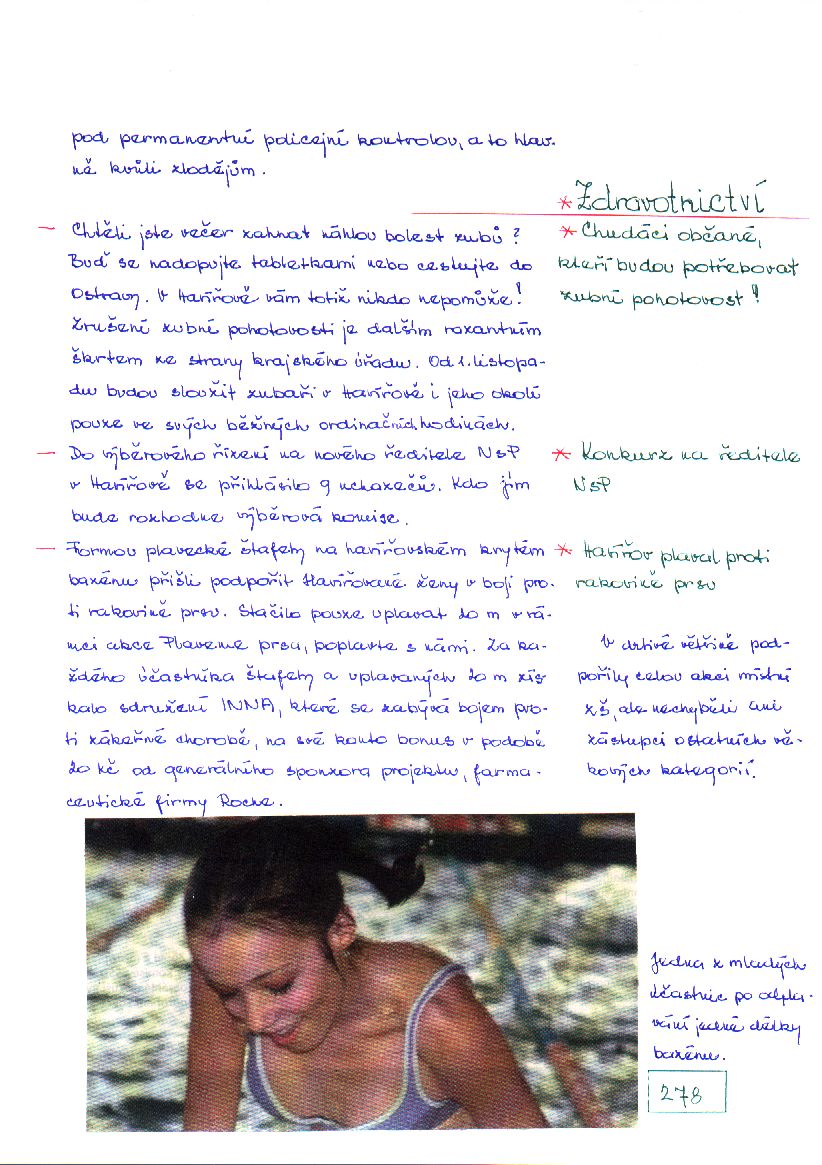 pod permanentní policejní kontrolou, a to hlav-
ně kvůli zlodějům.
* Zdravotnictví
— Chtěli jste večer zahnat náhlou bolest zubů?
Buď se nadopujte tabletkami nebo cestujte do
Ostravy. V Havířově vám totiž nikdo nepomůže!
Zrušení zubní pohotovosti je dalším razantním
škrtem ze strany krajského úřadu. Od 1. listopa-
du budou sloužit zubaři v Havířově i jeho okolí
pouze ve svých běžných ordinačních hodinách.
* Chudáci občané,
kteří budou potřebovat
zubní pohotovost!
— Do výběrového řízení na nového ředitele NsP
v Havířově se přihlásilo 9 uchazečů. Kdo jím
bude rozhodne výběrová komise.
* Konkurz na ředitele
NsP
— Formou plavecké štafety na havířovském krytém
bazénu přišli podpořit Havířované ženy v boji pro-
ti rakovině prsu. Stačilo pouze uplavat 20 m v rá-
mci akce Plaveme prsa, poplavte s námi. Za ka-
ždého účastníka štafety a uplavaných 20 m zís-
kalo sdružení INNA, které se zabývá bojem pro-
ti zákeřné chorobě, na své konto bonus v podobě
20 kč od generálního sponzora projektu, farma-
ceutické firmy Roche.
* Havířov plaval proti
rakovině prsu
V drtivé většině pod-
pořily celou akci místní
ZŠ, ale nechyběli ani
zástupci ostatních vě-
kových kategorií.
Jedna z mladých
účastnic po odpla-
vání jedné délky
bazénu.
278